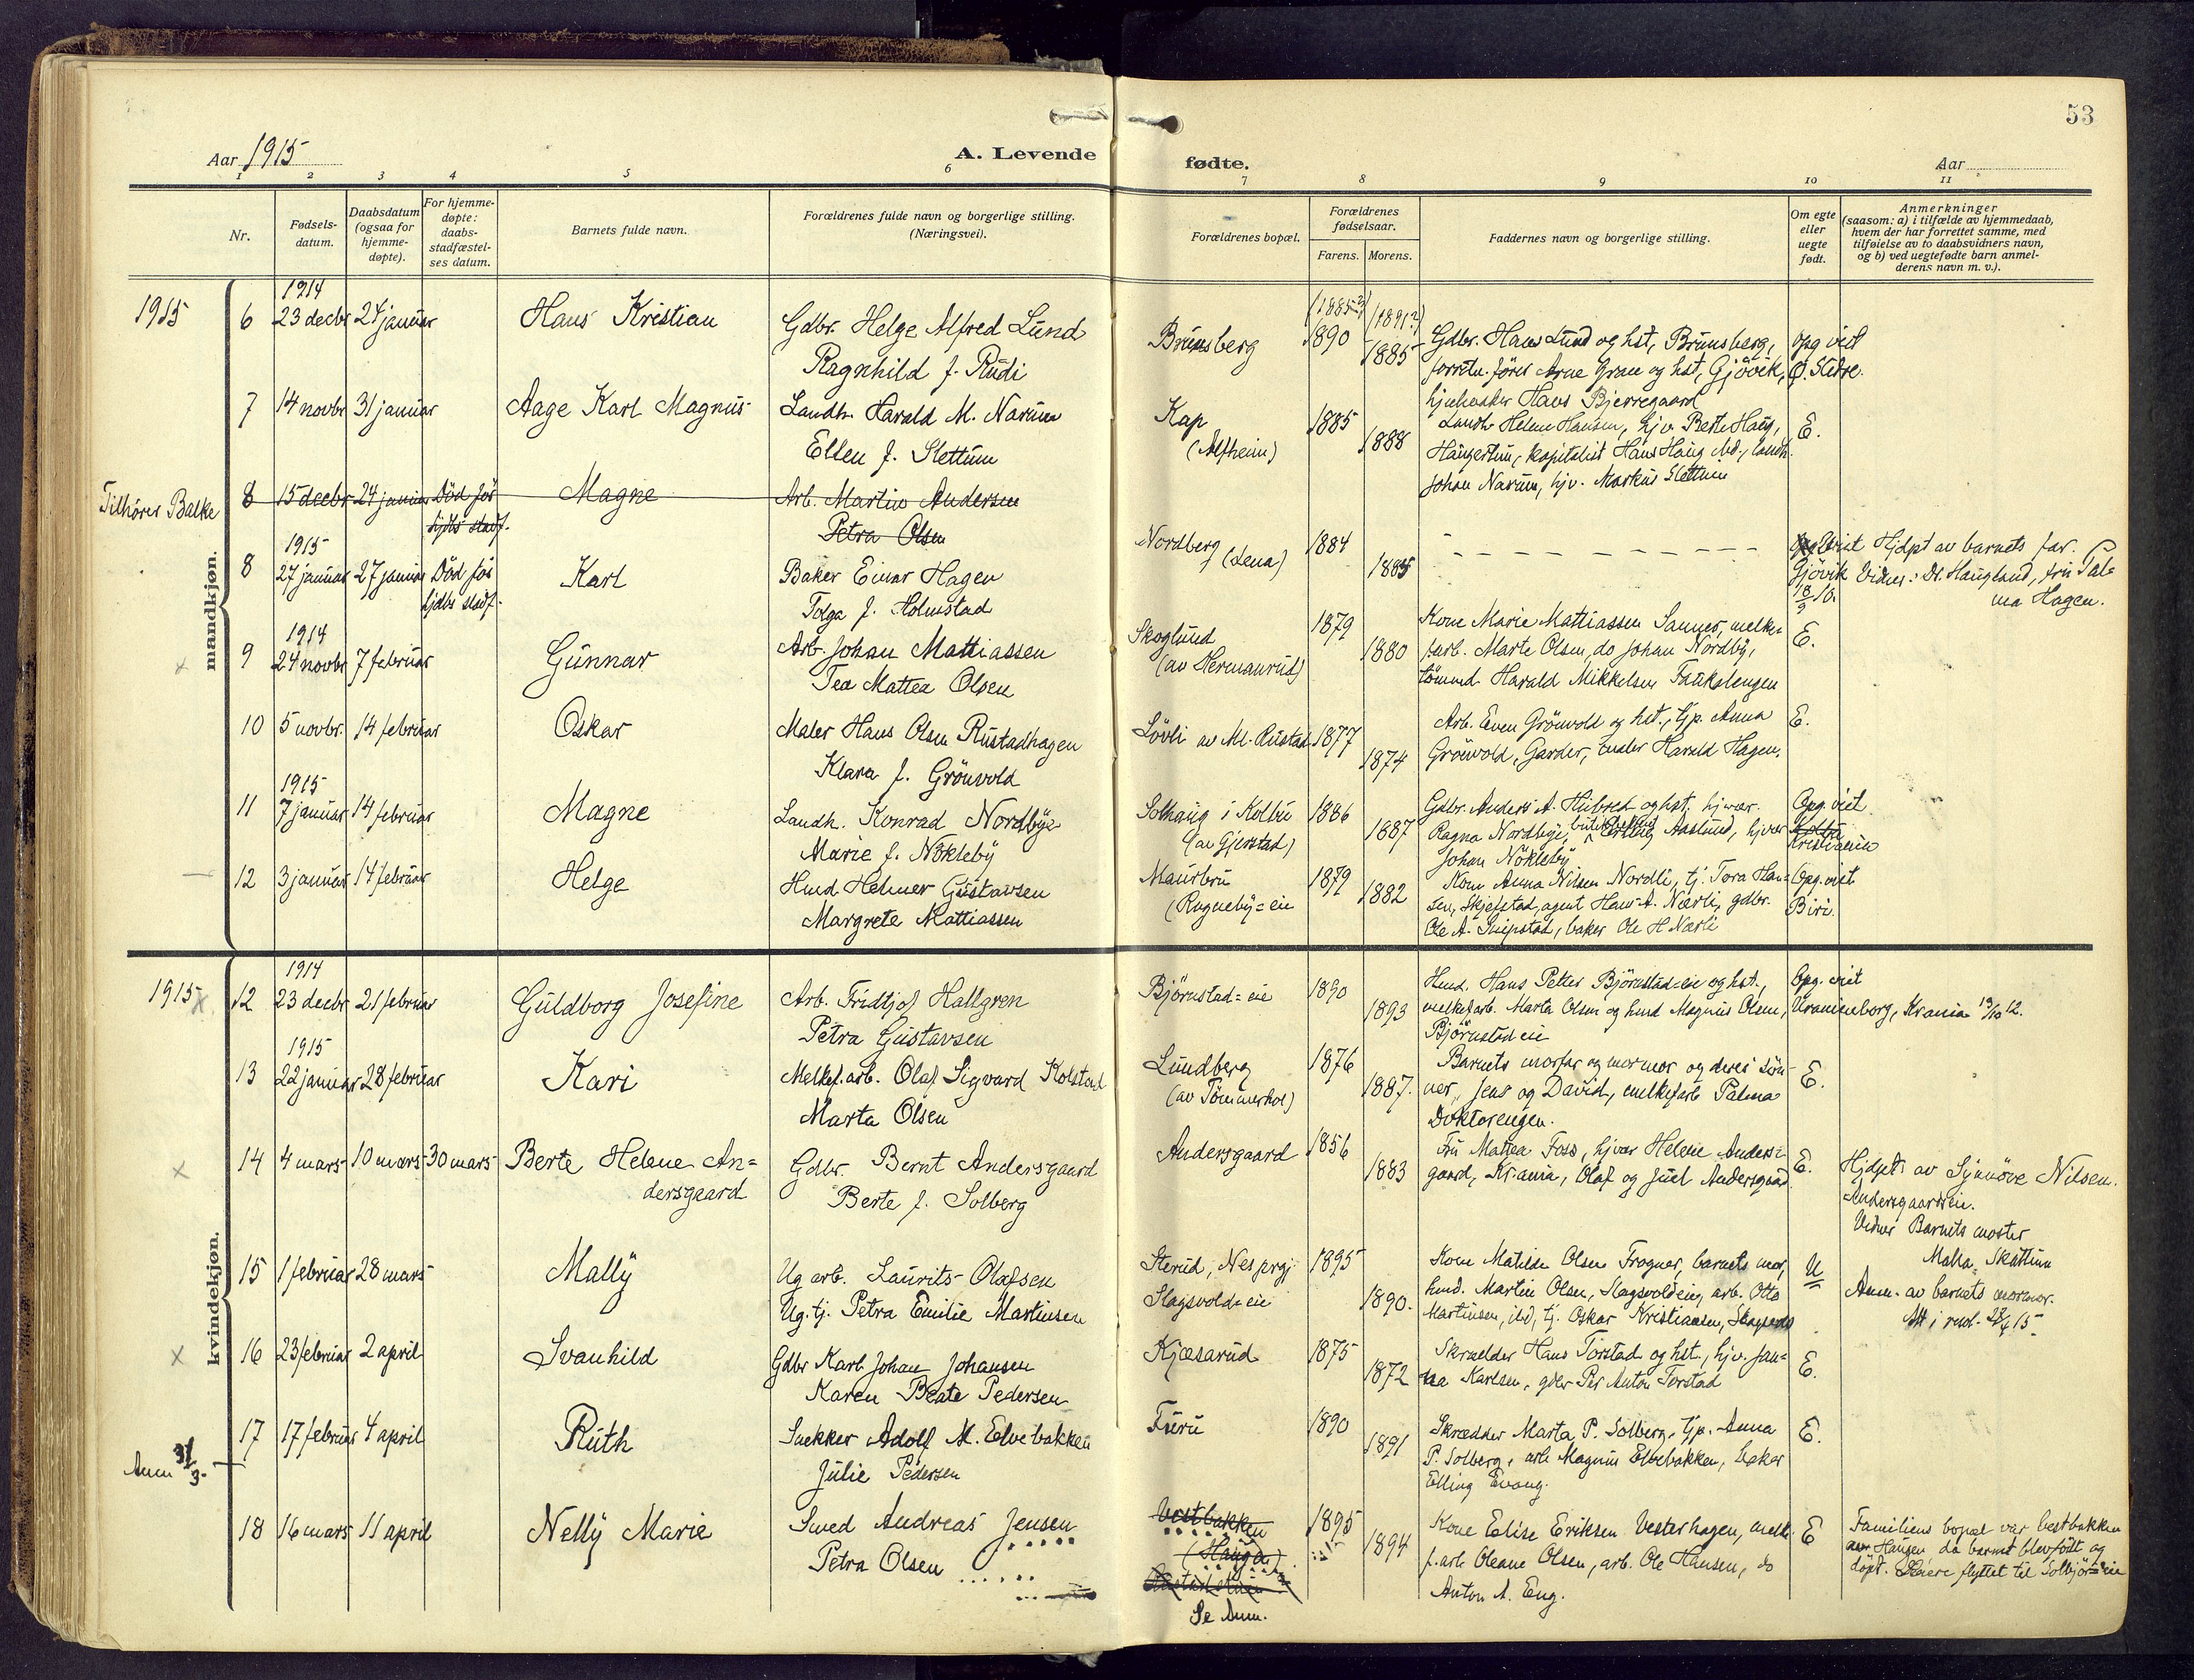 53
Aar 1915
A. Levende fødte.
Aar
1 2 3 4 5 6 7 8 9 10 11
Nr.
Fødsels-
datum.
Daabsdatum
(ogsaa for
hjemme-
døpte).
For hjemme-
døpte:
daabs-
stadfæstel-
ses datum.
Barnets fulde navn.
Forældrenes fulde navn og borgerlige stilling.
(Næringsvei).
Forældrenes bopæl.
Forældrenes
fødselsaar.
Farens. Morens.
Faddernes navn og borgerlige stilling.
Om egte
eller
uegte
født.
Anmerkninger
(saasom: a) i tilfælde av hjemmedaab,
hvem der har forrettet samme, med
tilføielse av to daabsvidners navn,
og b) ved uegtefødte barn anmel-
derens navn m. v.).
mandkjøn.
1915
1914
6 23 decbr 24 januar Hans Kristian
Gdbr. Helge Alfred Lund
Ragnhild f. Rudi
Brunsberg
(1885?) 1890
(1891?) 1885
Gdbr. Hans Lund og hst, Brunsberg,
Arne og hst, Gjövik,
Hans Bjerregaard
Opg viet
Ö. Slidre.
7 14 novbr 31 januar Aage Karl Magnus
Landh. Harald M. Narum
Ellen f. Slettum
Kap
(Alfheim)
1885
1888
Landh. Helene Hansen, hjv. Berte Haug,
Haugertun, kapitalist Hans Haug ibd., landh.
Johan Narum, hjv. Markus Slettum
E.
Tilhører Balke
8 15 decbr 24 januar Död før
hjdbs stadf.
Magne
Arb. Martin Andersen
Petra Olsen
1915
8 27 januar 27 januar Död før
hjdbs stadf.
Karl
Baker Einar Hagen
Tolga f. Holmstad
Nordberg
(Lena)
1884
1885
Opg. Viet
Gjövik
18/9 10.
Hjdpt av barnets far.
Vidner: Dr. Haugland, fru Pal-
ma Hagen.
1914
9 24 novbr 7 februar Gunnar
Arb. Johan Mattiassen
Tea Mattea Olsen
Skoglund
(av Hermanrud)
1879
1880
Kone Marie Mattiassen Sanner, melke-
f.arb. Marte Olsen, do Johan Nordby,
tömmd. Harald Mikkelsen Faukalengen
E.
10 5 novbr. 14 februar Oskar
Maler Hans Olsen Rustadhagen
Klara f. Grönvold
Lövli av Ml. Rustad
1877
1874
Arb. Even Grönvold og hst., tjp. Anna
Grönvold, Garder, maler Harald Hagen.
E.
1915
11 7 januar 14 februar Magne
Landh. Konrad Nordbye
Marie f. Nökleby
Solhaug i Kolbu
(av Gjerstad)
1886
1887
Gdbr. Anders A. Hubred og hst. hjvær.
Ragna Nordbye, Erling Aaslund, hjvær
Johan Nökleby
Opg. viet
Kolbu
Kristiania
12 3 januar 14 februar Helge
Hmd Helmer Gustavsen
Margrete Mattiassen
Maurbru
(Rogneby-eie
1879
1882
Kone Anna Nilsen Nordli, tj. Tora Han-
sen, Skjefstad, agent Hans A. Nærli, gdbr.
Ole A. Snipstad, baker Ole H Nærli
Opg. viet
Biri.
kvindekjøn.
1915
1914
12 23 decbr 21 februar Guldborg Josefine
Arb. Fridtjof Hallgren
Petra Gustavsen
Björnstad-eie
1890
1893
Hmd. Hans Petter Björnstad-eie og hst.,
melkef.arb. Marta Olsen og hmd Magnus Olsen,
Björnstad eie
Opg. viet
Uranienborg, Kr.ania 19/10 12.
1915
13 22 januar 28 februar Kari
Melkef.arb. Olaf Sigvard Kolstad
Marta Olsen
Lundberg
(av Tömmerhol)
1876
1887.
Barnets morfar og mormor og deres sön-
ner, Jens og David, melkef.arb Palma
Doktorengen.
E.
14 4 mars 10 mars 30 mars Berte Helene An-
dersgaard
Gdbr. Bernt Andersgaard
Berte f. Solberg
Andersgaard
1856
1883
Fru Matea Foss, hjvær Helene Anders-
gaard, Kr.ania, Olaf og Juel Andersgaard
E.
Hjdpt av Synnöve Nilsen.
Andersgaardseie.
Vidner Barnets moster
Malla Skattum
15 1 februar 28 mars Mally
Ug arb. Laurits Olafsen
Ug. tj. Petra Emilie Martinsen
Sterud, Nes prgj.
Slagsvold-eie
1895
1890.
Kone Matilde Olsen Frogner, barnets mor,
hmd. Martin Olsen, Slagsvoldeie, arb. Otto
Martinsen, ibd, tj. Oskar Kristiansen,
U
Anm. av barnets mormor.
16 23 februar 2 april Svanhild
Gdbr Karl Johan Johansen
Karen Beate Pedersen
Kjæsarud
1875
1872
Skrædder Hans Torstad og hst., hjv. Jan-
na Karlsen, gdbr Per Anton Torstad
E.
Anm 31/3.
17 17 februar 4 april Ruth
Snekker Adolf M. Elvebakken
Julie Pedersen
Furu
1890
1891
Skrædder Marta P. Solberg, tjp. Anna
P. Solberg, arb Magnus Elvebakken, baker
Elling Evang.
E.
18 16 mars 11 april Nelly Marie
Smed Andreas Jensen
Petra Olsen
Vestbakken
(Haugen)
Se Anm.
1895
1894
Kone Elise Eriksen Vesterhagen, melk-
f.arb Oleane Olsen, arb. Ole Hansen, do
Anton A. Eng.
E
Familiens bopæl var Vestbakken
Haugen da barnet blev födt og
döpt. Senere flyttet til Solbjör-eie